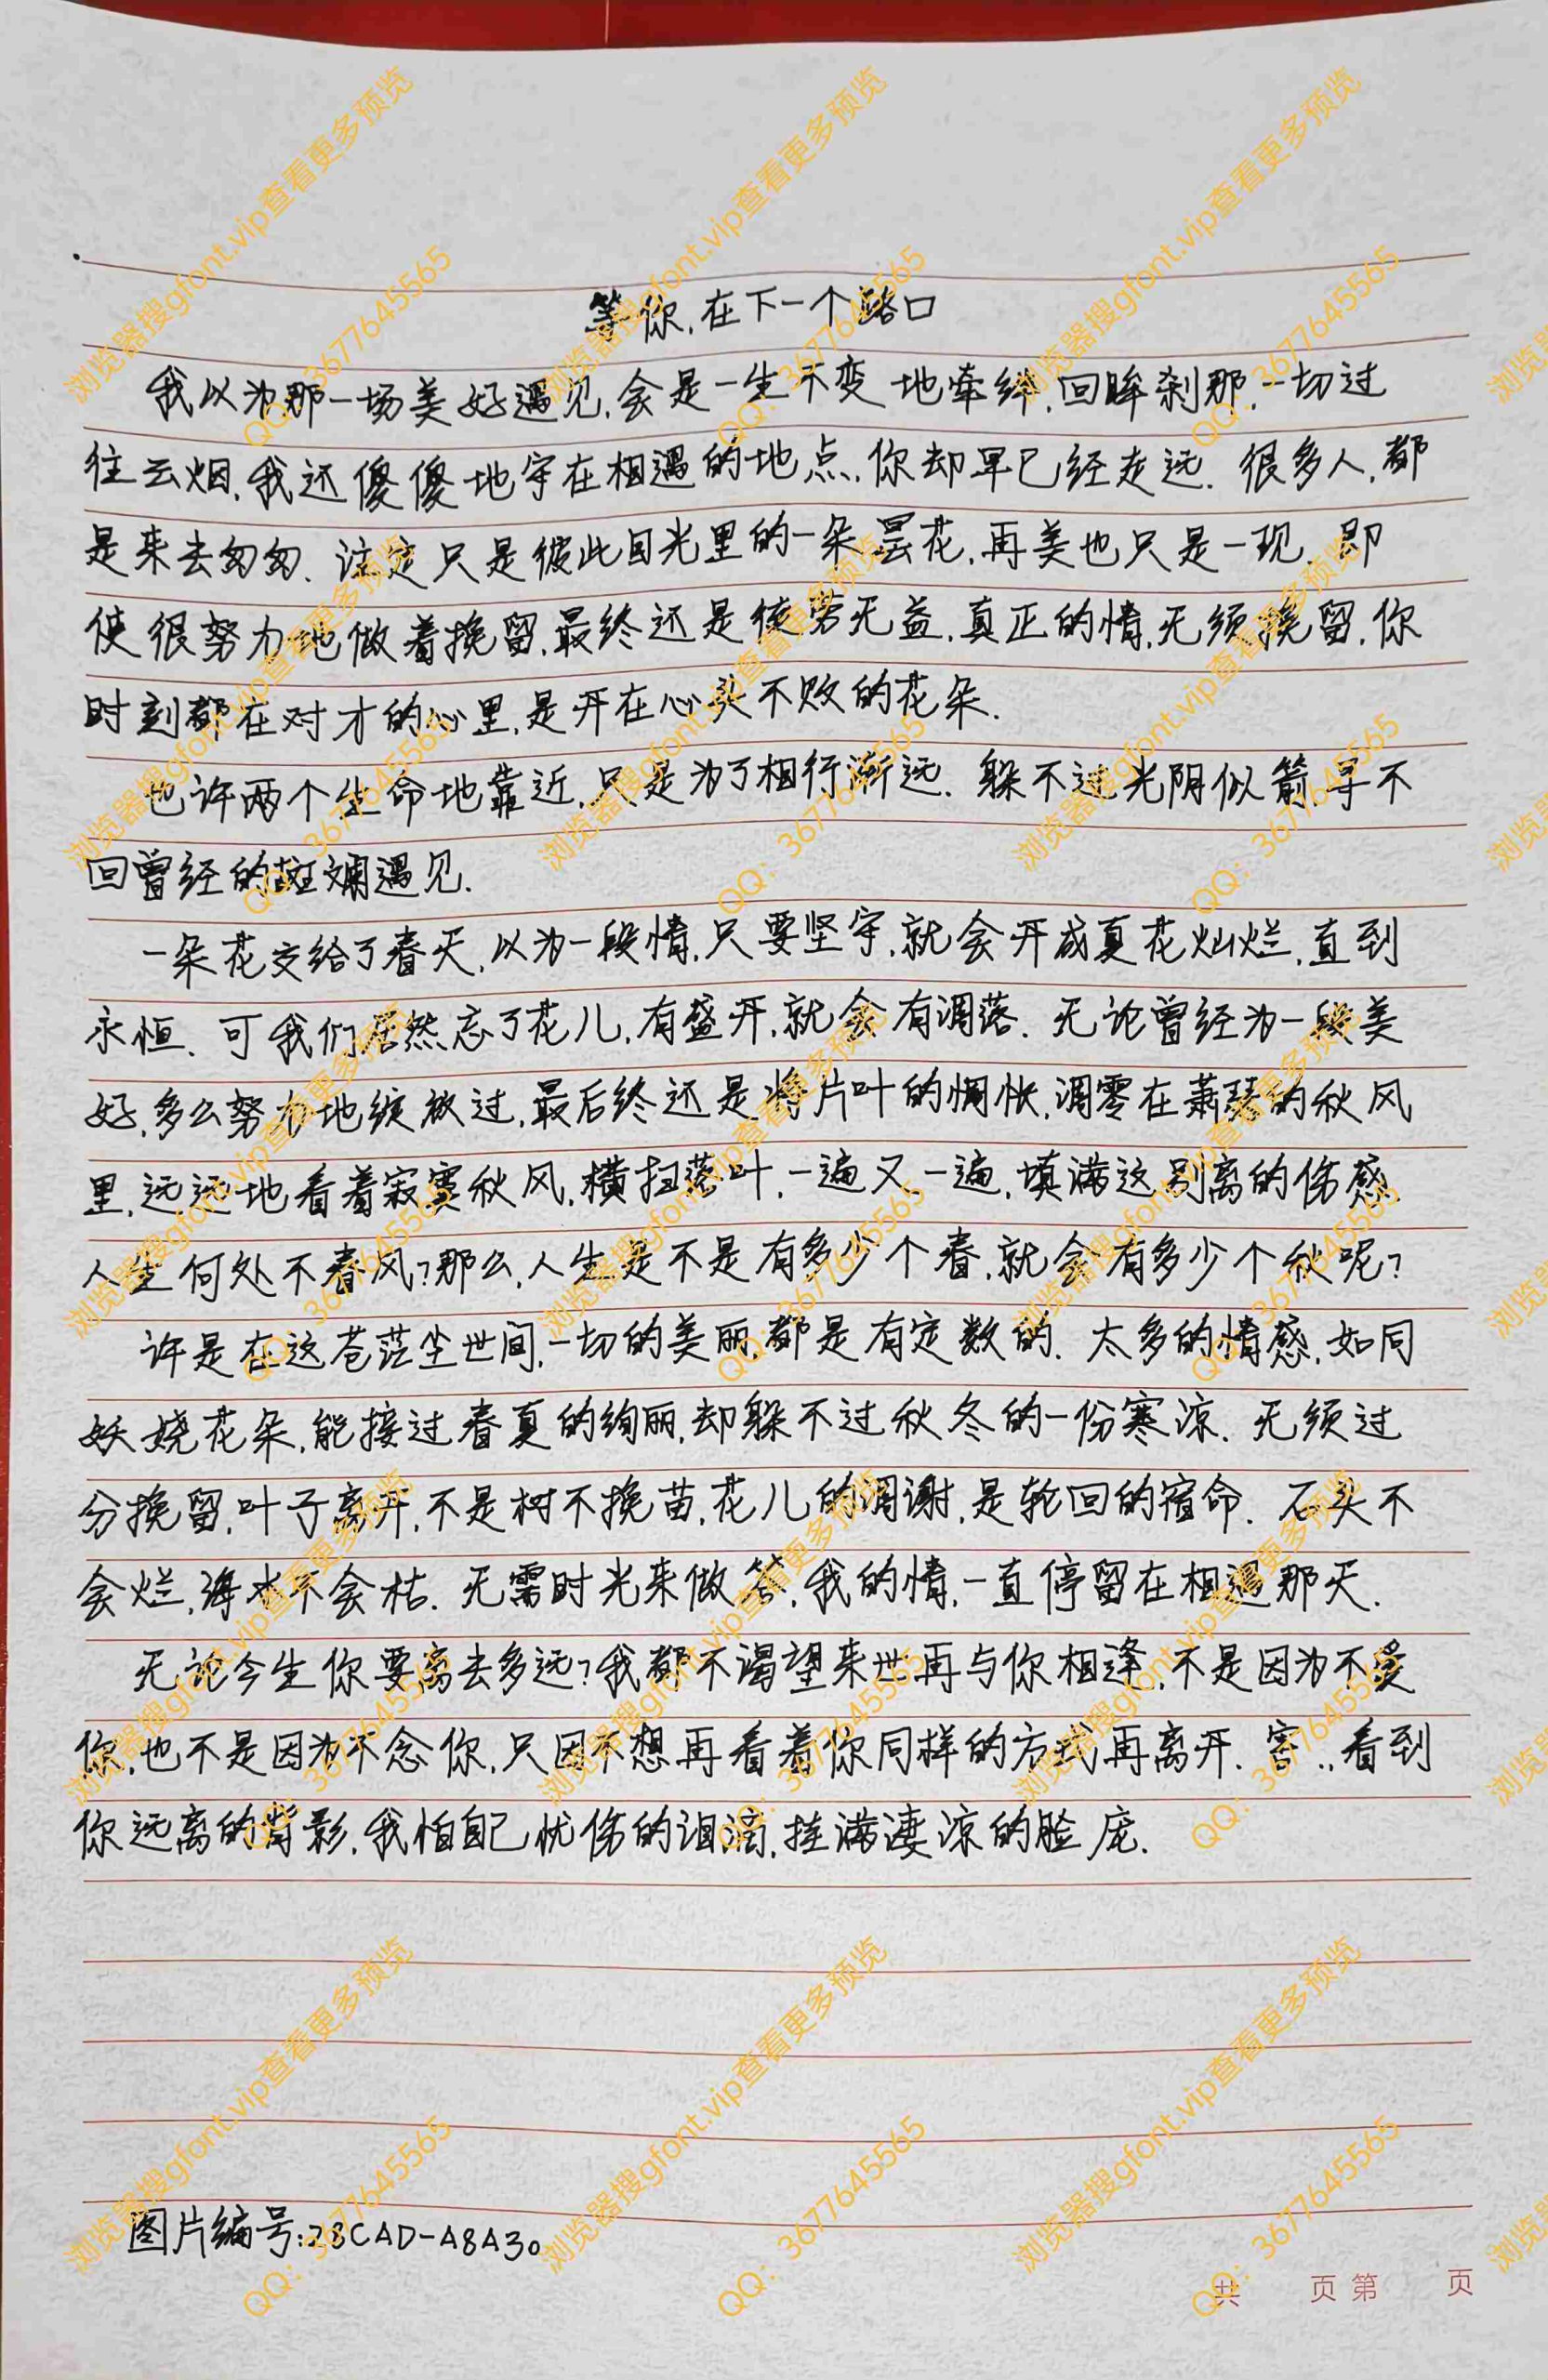 等你,在下一个路口
我以为那一场美好遇见,会是一生不变地牵绊,回眸刹那,一切过
往云烟,我还傻傻地守在相遇的地点,你却早已经走远. 很多人,都
是来去匆匆. 注定只是彼此目光里的一朵昙花,再美也只是一现. 即
使很努力地做着挽留,最终还是徒劳无益,真正的情,无须挽留,你
时刻都在对才的心里,是开在心头不败的花朵.
也许两个生命地靠近,只是为了相行渐远. 躲不过光阴似箭,寻不
回曾经的斑斓遇见.
一朵花交给了春天,以为一段情,只要坚守,就会开成夏花灿烂,直到
永恒. 可我们居然忘了花儿,有盛开,就会有凋落. 无论曾经为一段美
好,多么努力地绽放过,最后终还是将片叶的惆怅,凋零在萧瑟的秋风
里,远远地看着寂寞秋风,横扫落叶,一遍又一遍,填满这别离的伤感.
人生何处不春风?那么,人生是不是有多少个春,就会有多少个秋呢?
许是在这苍茫尘世间,一切的美丽,都是有定数的. 太多的情感,如同
妖娆花朵,能接过春夏的绚丽,却躲不过秋冬的一份寒凉. 无须过
分挽留,叶子离开,不是树不挽苗,花儿的凋谢,是轮回的宿命. 石头不
会烂,海水不会枯. 无需时光来做答,我的情,一直停留在相遇那天.
无论今生你要离去多远?我都不渴望来世再与你相逢,不是因为不爱
你,也不是因为不念你,只因不想再看着你同样的方式再离开. 害..看到
你远离的背影,我怕自己忧伤的泪滴,挂满凄凉的脸庞.
图片编号:28CAD-A8A30
共 页 第 页
浏览器搜gfont.vip查看更多预览
QQ: 3677645565